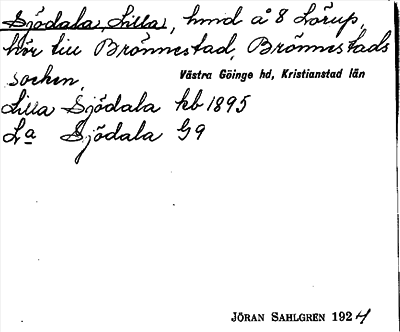 Sjödala, Lilla, hmd å 8 Lörup,
hör till Brönnestad, Brönnestads
socken, Västra Göinge hd, Kristianstad län
Lilla Sjödala kb 1895
La Sjödala G9
JÖRAN SAHLGREN 1924